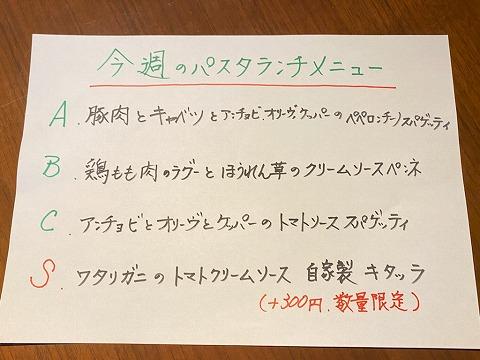 今週のパスタランチメニュー
A. 豚肉とキャベツとアンチョビ、オリーヴ、ケッパーのペペロンチーノスパゲッティ
B. 鶏もも肉のラグーとほうれん草のクリームソースペンネ
C. アンチョビとオリーヴとケッパーのトマトソーススパゲッティ
S. ワタリガニのトマトクリームソース 自家製 キタッラ
(+300円、数量限定)